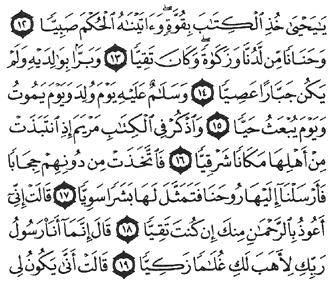 يَٰيَحْيَىٰ خُذِ ٱلْكِتَٰبَ بِقُوَّةٍۖ وَءَاتَيْنَٰهُ ٱلْحُكْمَ صَبِيًّا ۝١٢
وَحَنَانًا مِّن لَّدُنَّا وَزَكَوٰةًۖ وَكَانَ تَقِيًّا ۝١٣ وَبَرًّۢا بِوَٰلِدَيْهِ وَلَمْ
يَكُن جَبَّارًا عَصِيًّا ۝١٤ وَسَلَٰمٌ عَلَيْهِ يَوْمَ وُلِدَ وَيَوْمَ يَمُوتُ
وَيَوْمَ يُبْعَثُ حَيًّا ۝١٥ وَٱذْكُرْ فِى ٱلْكِتَٰبِ مَرْيَمَ إِذِ ٱنتَبَذَتْ
مِنْ أَهْلِهَا مَكَانًا شَرْقِيًّا ۝١٦ فَٱتَّخَذَتْ مِن دُونِهِمْ حِجَابًا
فَأَرْسَلْنَآ إِلَيْهَا رُوحَنَا فَتَمَثَّلَ لَهَا بَشَرًا سَوِيًّا ۝١٧ قَالَتْ إِنِّىٓ
أَعُوذُ بِٱلرَّحْمَٰنِ مِنكَ إِن كُنتَ تَقِيًّا ۝١٨ قَالَ إِنَّمَآ أَنَا۠ رَسُولُ
رَبِّكِ لِأَهَبَ لَكِ غُلَٰمًا زَكِيًّا ۝١٩ قَالَتْ أَنَّىٰ يَكُونُ لِى